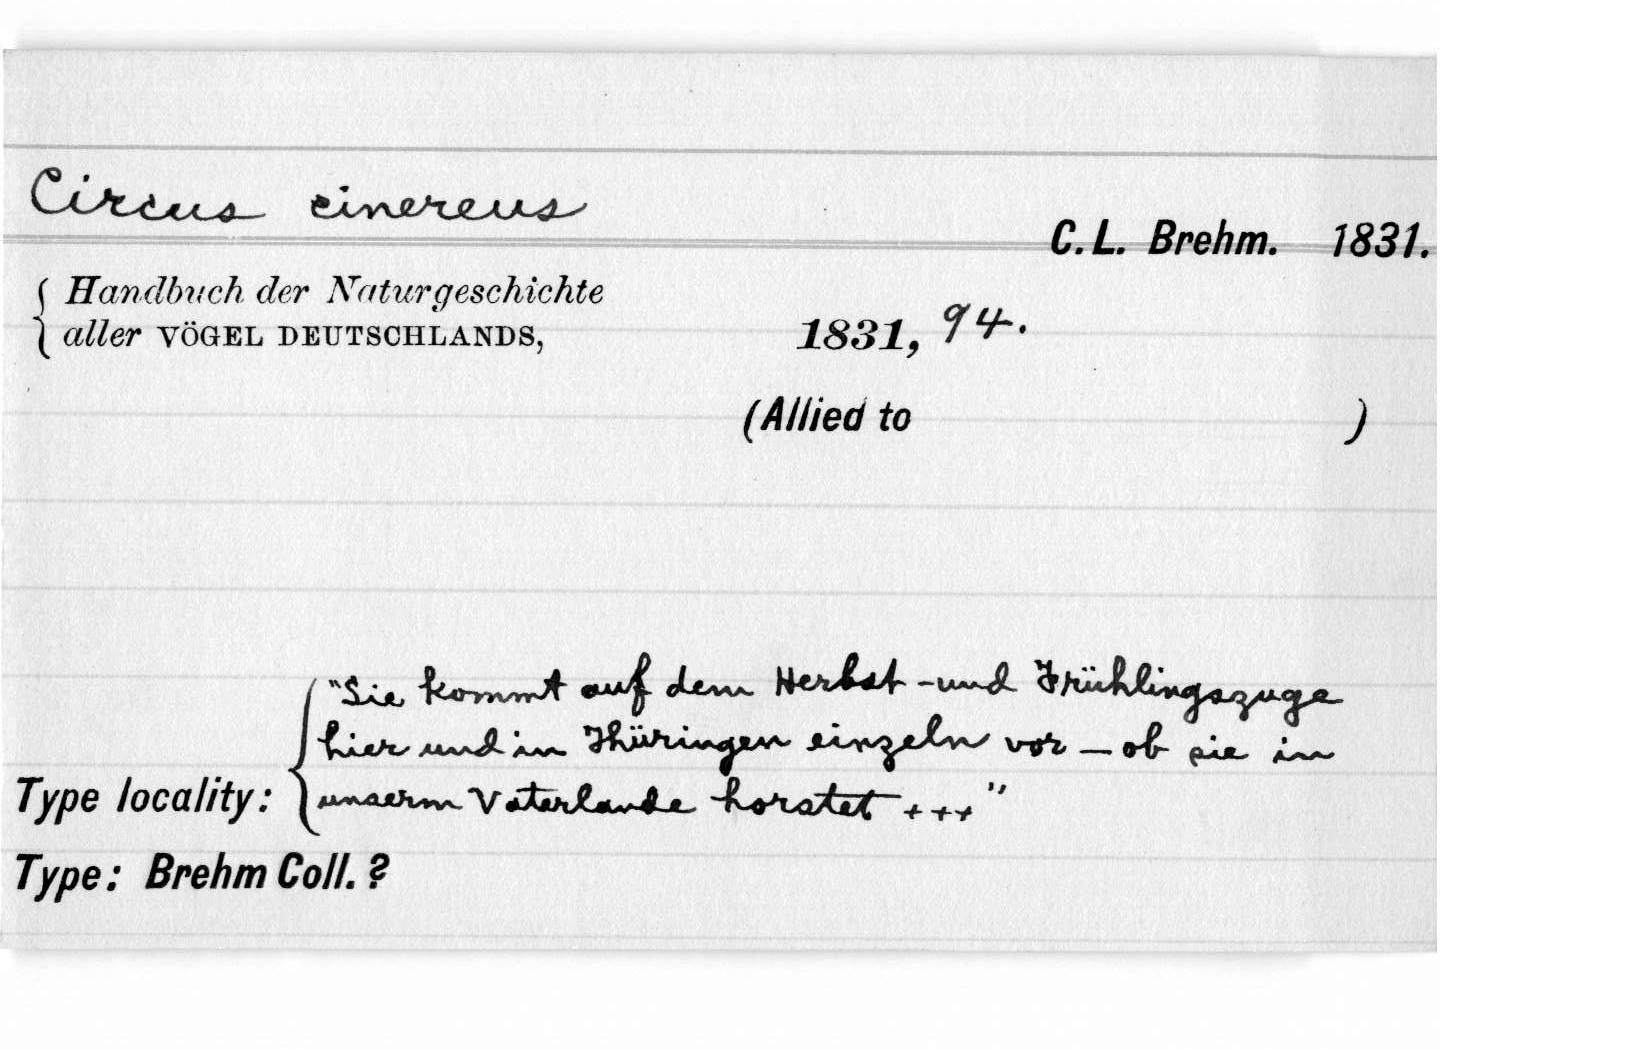 Circus cinereus
C. L. Brehm. 1831.
Handbuch der Naturgeschichte
aller VÖGEL DEUTSCHLANDS,
1831, 94.
(Allied to )
"Sie kommt auf dem Herbst-und Frühlingszuge
hier und in Thüringen einzeln vor – ob sie in
Type locality: unserm Vaterlande horstet +++"
Type: Brehm Coll. ?